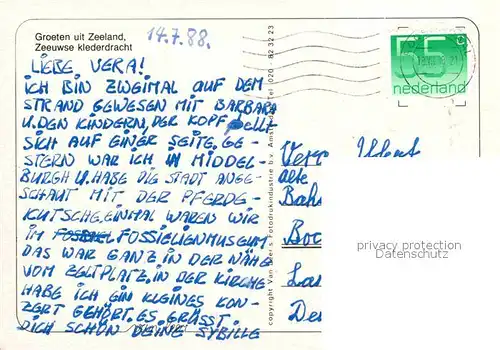 Groeten uit Zeeland,
Zeeuwse klederdracht
14.7.88.
55
nederland
LIEBE VERA!
ICH BIN ZWEIMAL AUF DEM
STRAND GEWESEN MIT BARBARA
U. DEN KINDERN, DER KOPF
SICH AUF EINER SEITE. GE-
STERN WAR ICH IN MIDDEL-
BURGH U. HABE DIE STADT ANGE-
SCHAUT MIT DER PFERDE-
KUTSCHE. EINMAL WAREN WIR
IM FOSSIELIENMUSEUM
DAS WAR GANZ IN DER NÄHE
VOM ZELTPLATZ. IN DER KIRCHE
HABE ICH EIN KLEINES KON-
ZERT GEHÖRT. ES GRÜSST
DICH SCHÖN DEINE SYBILLE
copyright Van Fotodrukindustrie b.v. Amsterdam Tel 020 - 82 32 23
alte
privacy protection
Datenschutz